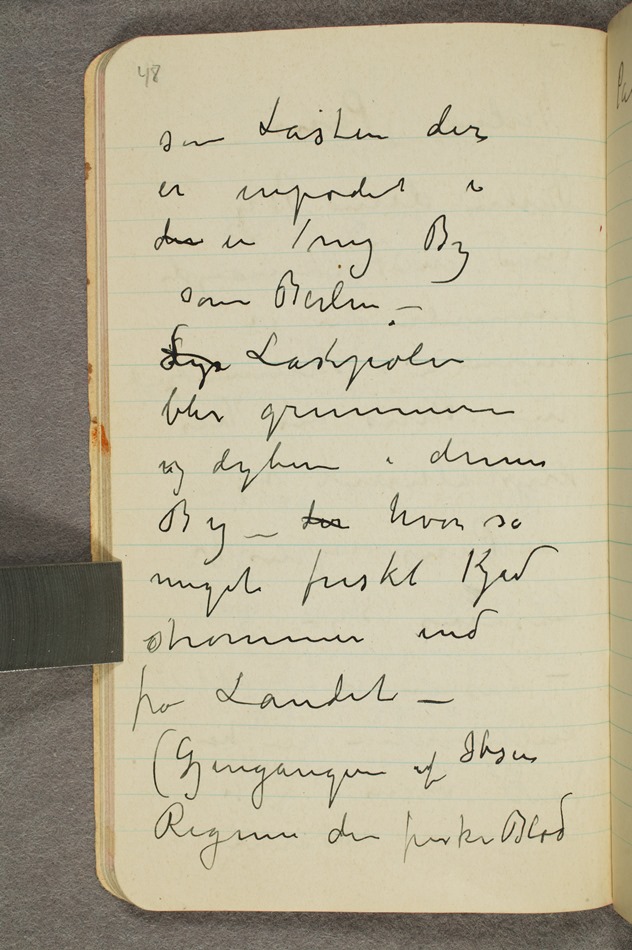 48
som Lasten der
er inpodet i
der en / ny By
som Berlin —
Lys Lastpølen
blir grummere
og dybere i denne
By — der hvor så
meget friskt Kjød
strømmer ind
fra Landet —
(Gjengangere af Ibsen
Regine den friske Blod